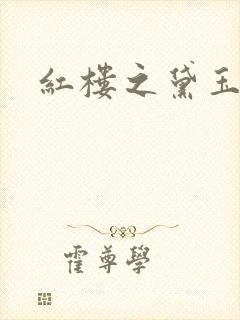 紅樓之黛玉
霍尊學